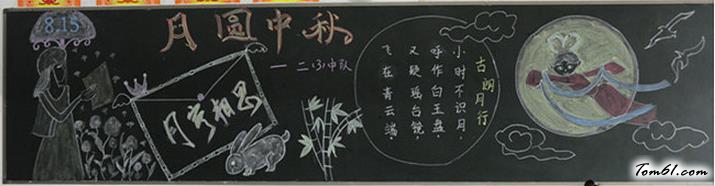 8.15
月圆中秋
—二(3)中队
月寄相思
古朗月行
小时不识月，
呼作白玉盘。
又疑瑶台镜，
飞在青云端。
Tom61.com